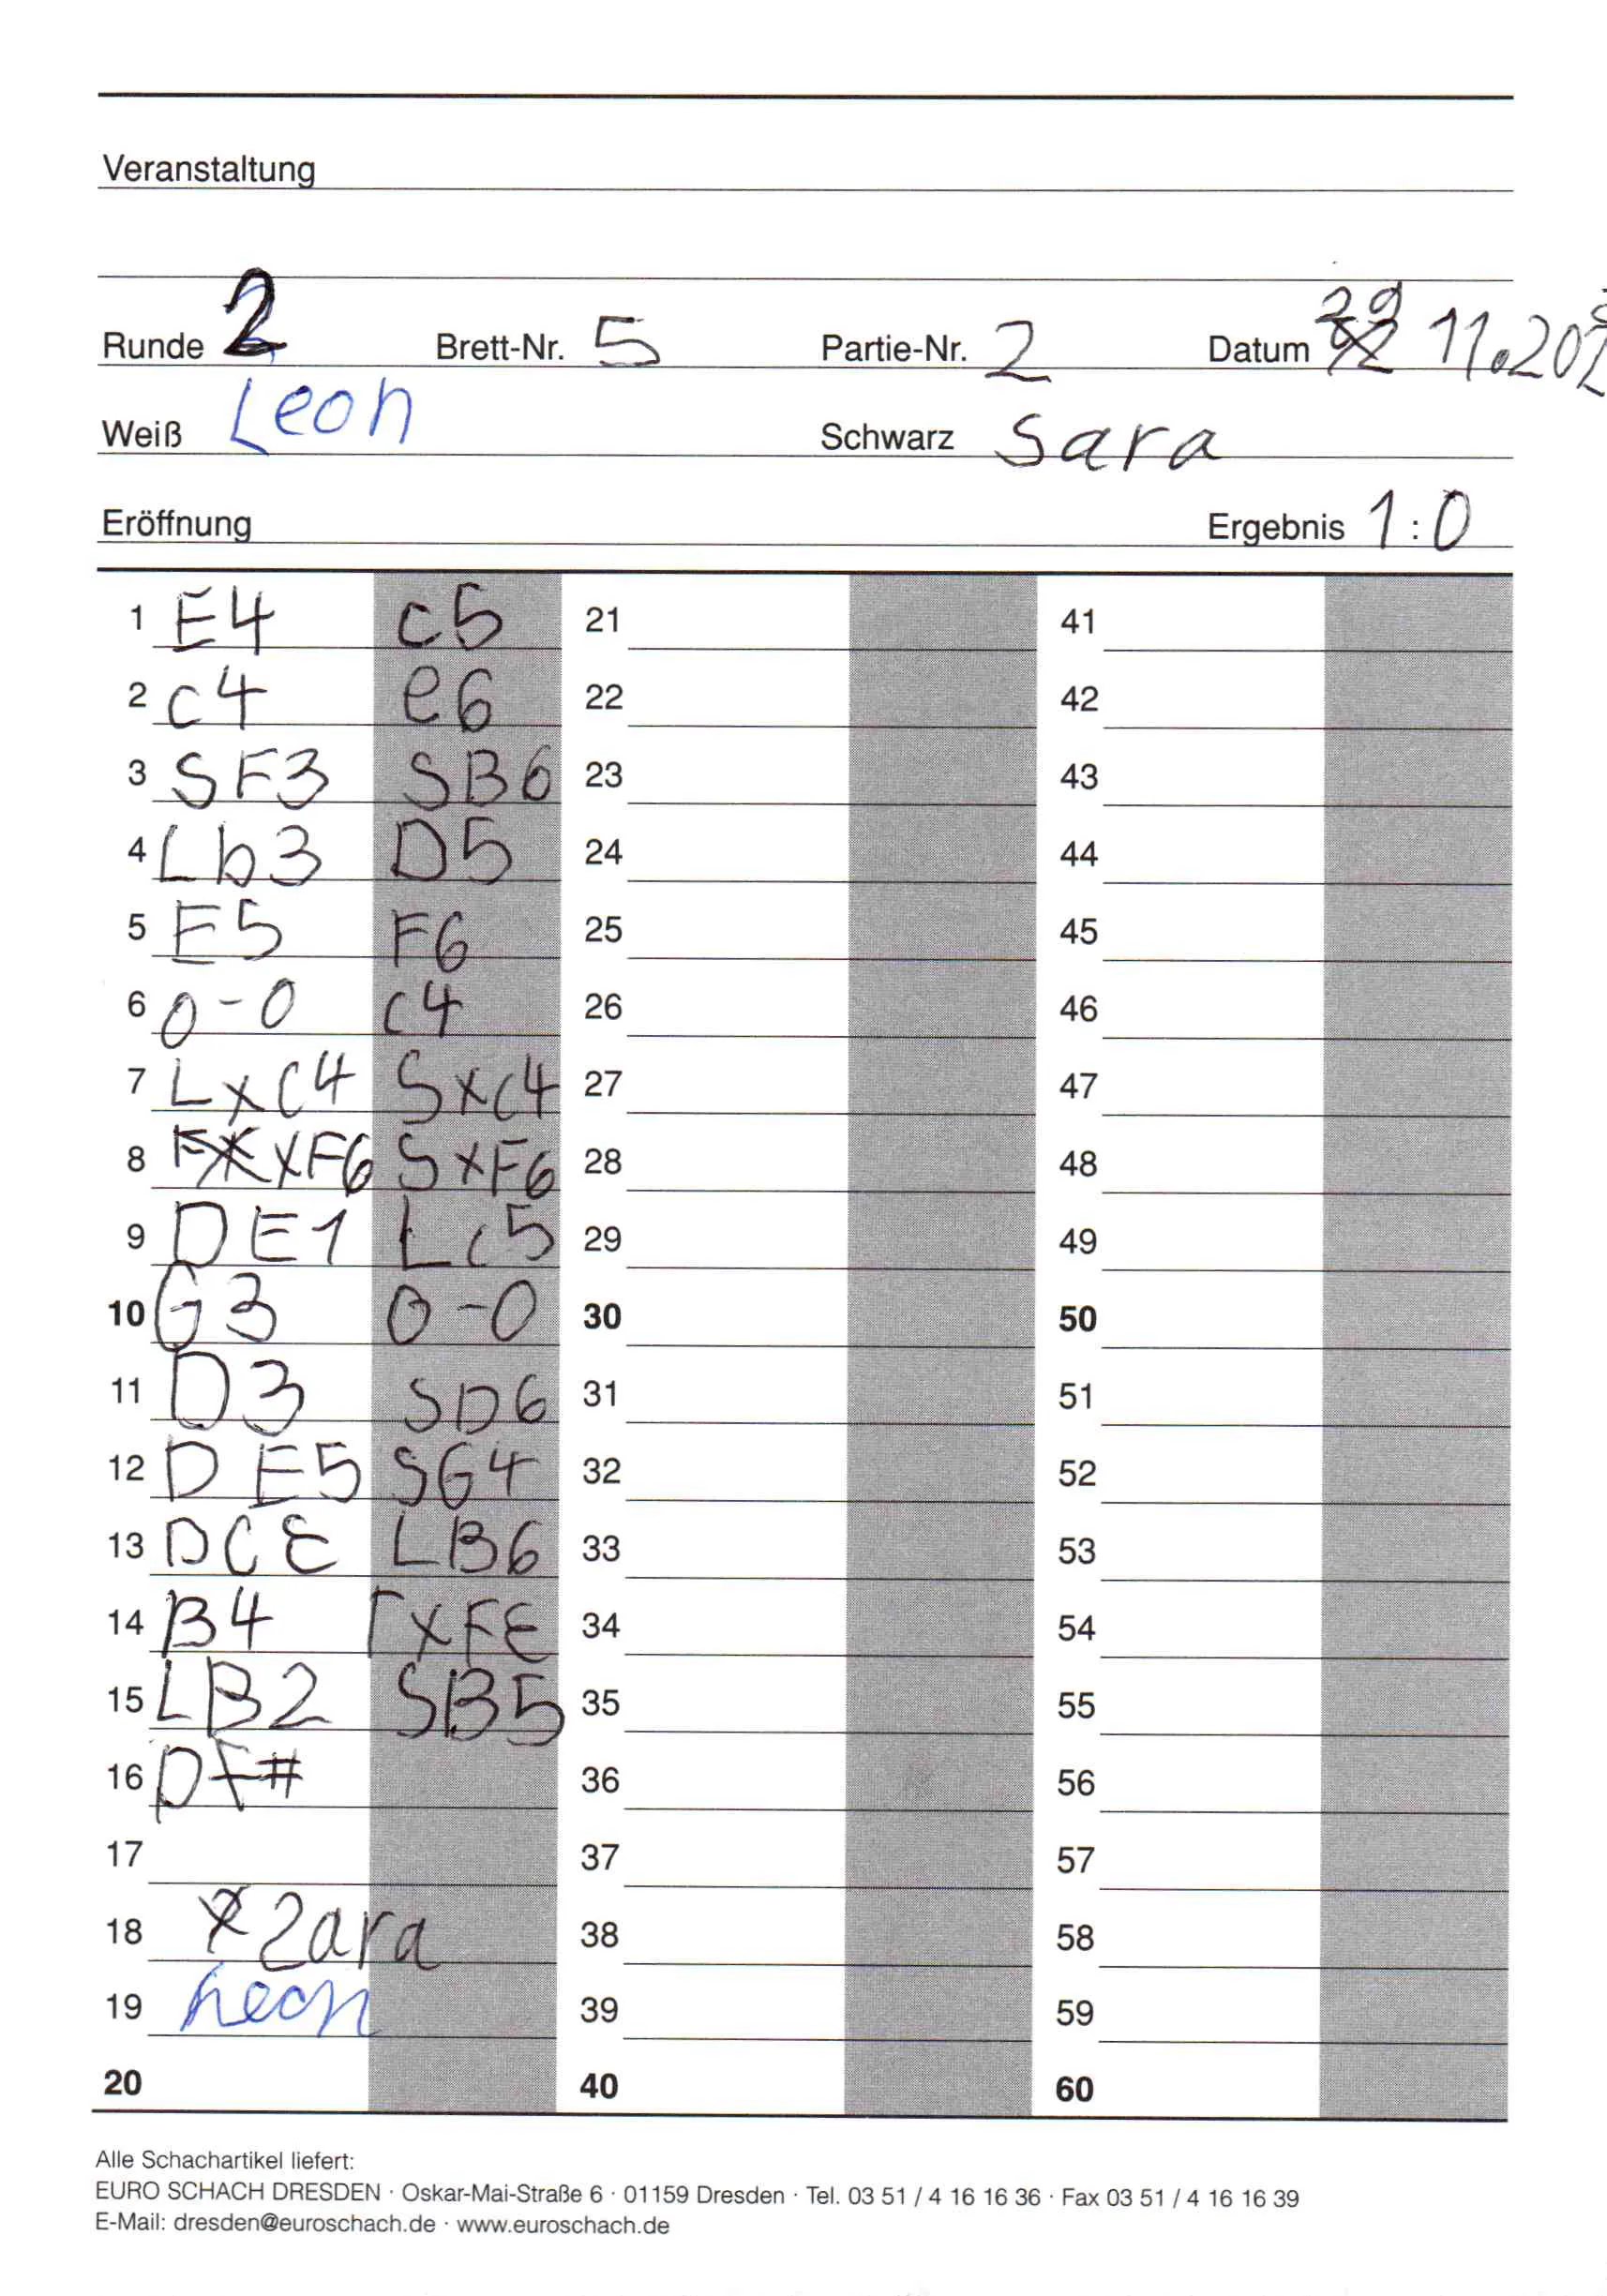 Veranstaltung
Runde 2 Brett-Nr. 5 Partie-Nr. 2 Datum 29 11.202
Weiß Leon Schwarz Sara
Eröffnung Ergebnis 1:0
1 E4 c5 21 41
2 c4 e6 22 42
3 SF3 SB6 23 43
4 Lb3 D5 24 44
5 E5 F6 25 45
6 0-0 c4 26 46
7 LxC4 Sxc4 27 47
8 xF6 SxF6 28 48
9 DE1 Lc5 29 49
10 G3 0-0 30 50
11 D3 SD6 31 51
12 DE5 SG4 32 52
13 DCE LB6 33 53
14 B4 TxFE 34 54
15 LB2 SB5 35 55
16 DF# 36 56
17 37 57
18 Zara 38 58
19 Leon 39 59
20 40 60
Alle Schachartikel liefert:
EURO SCHACH DRESDEN · Oskar-Mai-Straße 6 · 01159 Dresden · Tel. 03 51 / 4 16 16 36 · Fax 03 51 / 4 16 16 39
E-Mail: dresden@euroschach.de · www.euroschach.de